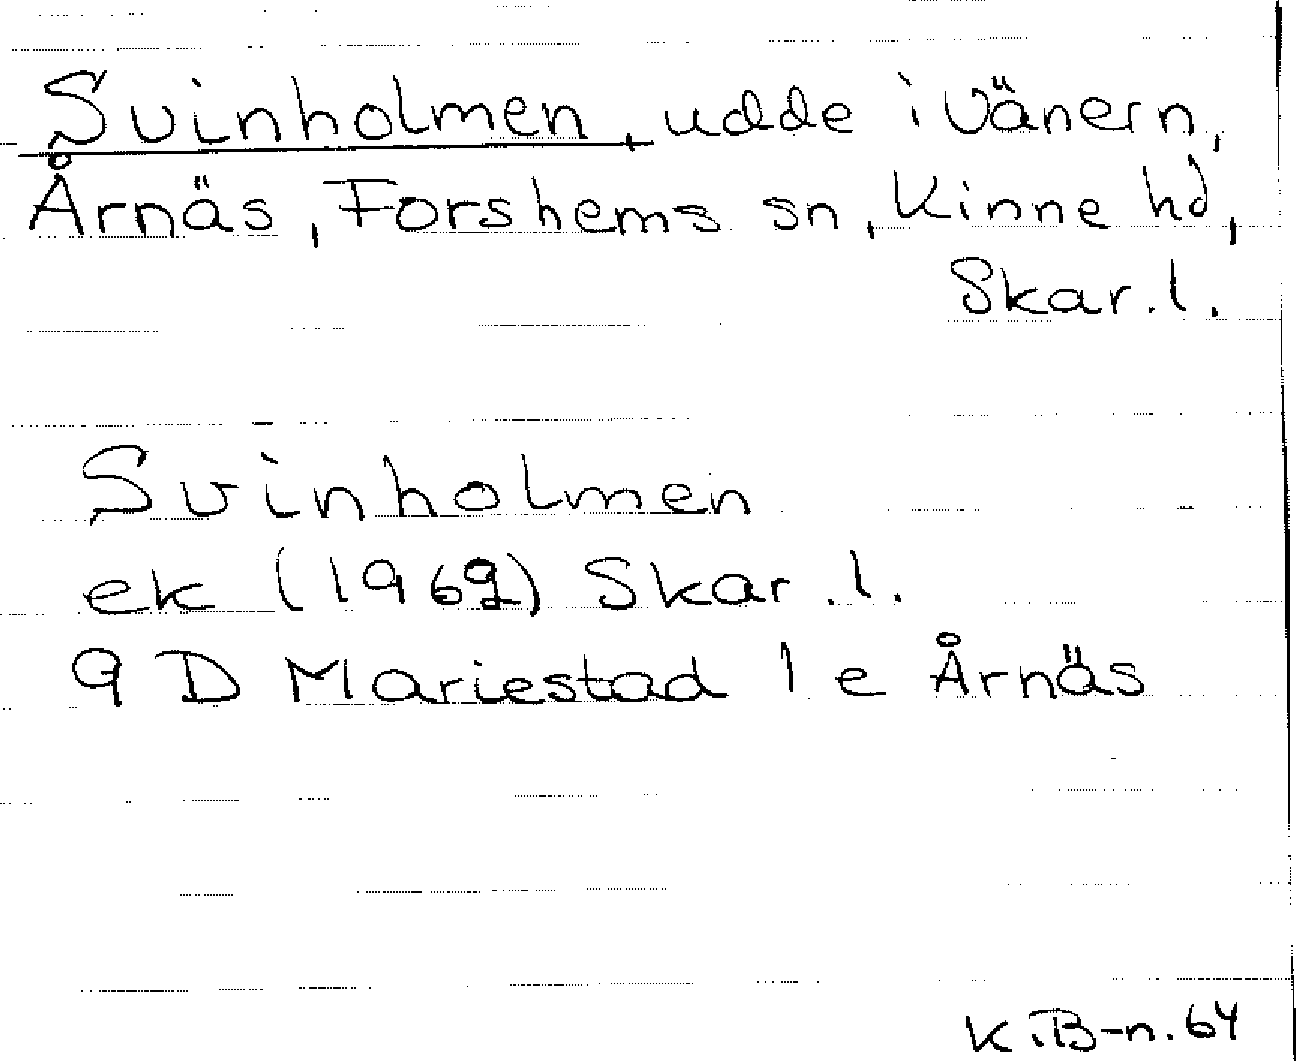 Svinholmen, udde i Vänern,
Årnäs, Forshems sn, Kinne hd,
Skar. l.
Svinholmen
ek (1969) Skar. l.
9 D Mariestad 1 e Årnäs
K.B-n. 64